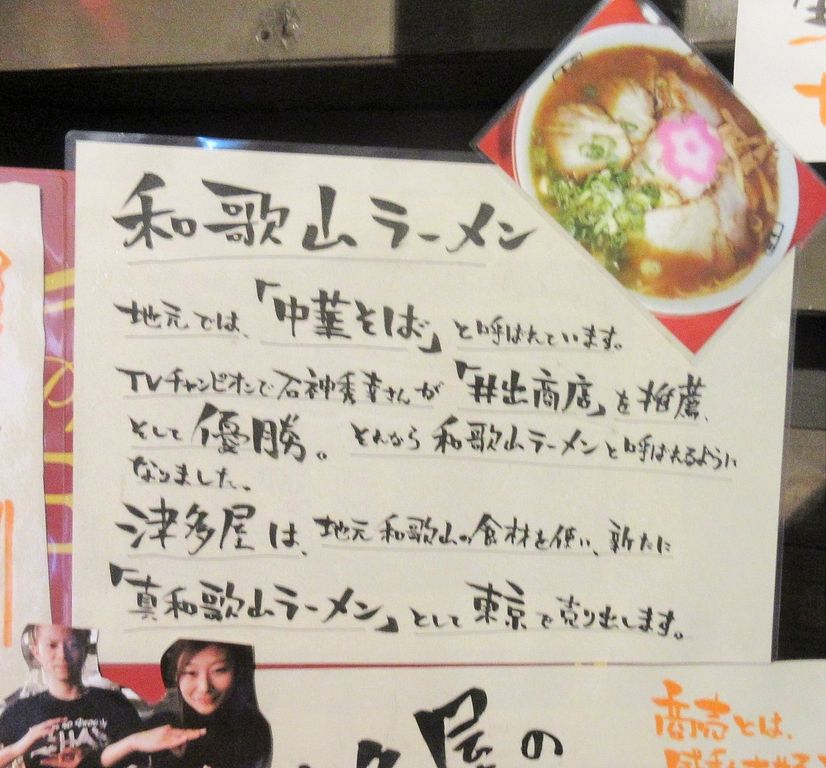 和歌山ラーメン
地元では、「中華そば」と呼ばれています。
TVチャンピオンで石神秀幸さんが「井出商店」を推薦、
そして優勝。それから和歌山ラーメンと呼ばれるように
なりました。
津多屋は、地元和歌山の食材を使い、新たに
「真和歌山ラーメン」として東京で売り出します。
屋の
商売とは、